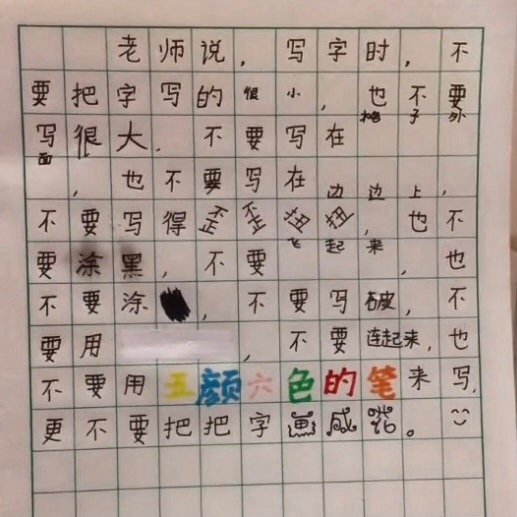 老师说，写字时，不
要把字写的很小，也不要
写很大，不要写在格子外
面，也不要写在边边上，
不要写得歪歪扭扭，也不
要涂黑，不要飞起来，也
不要涂，不要写破，不
要用，不要连起来，也
不要用五颜六色的笔来写，
更不要把把字画成花。